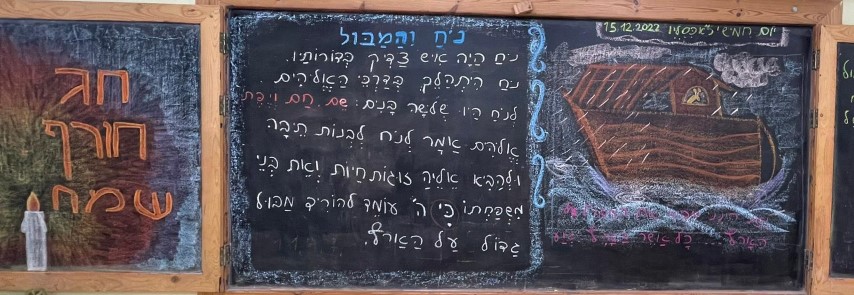 חג
חורף
שמח
נֹחַ וְהַמַבּוּל
נֹחַ הָיָה אִישׁ צַדִיק בְּדוֹרוֹתָיו.
נֹחַ הִיתְהַלֵךְ בְּדַרְכֵי הָאֱלֹוהִים.
לְנֹחַ הָיוּ שְׁלֹשָׁה בָּנִים: שֵׁם, חָם וְיֶפֶת
אֱלֹהִים אָמַר לְנֹחַ לִבְנוֹת תֵיבָה
וּלְהָבִיא אֵלֶיהָ זוּגוֹת חַיוֹת וְאֶת בְּנֵי
מִשְׁפַּחְתוֹ כִּי ה' עוֹמֵד לְהוֹרִיד מַבּוּל
גָדוֹל עַל הָאָרֶץ.
יום חמישי 15.12.2022
הָאָרֶץ... כָּל אֲשֶׁר